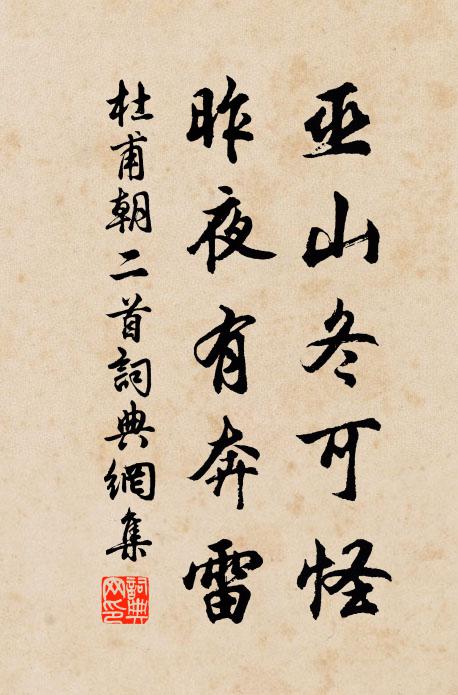 巫山冬可怪
昨夜有奔雷
杜甫朝二首詞典網集
詞典網印